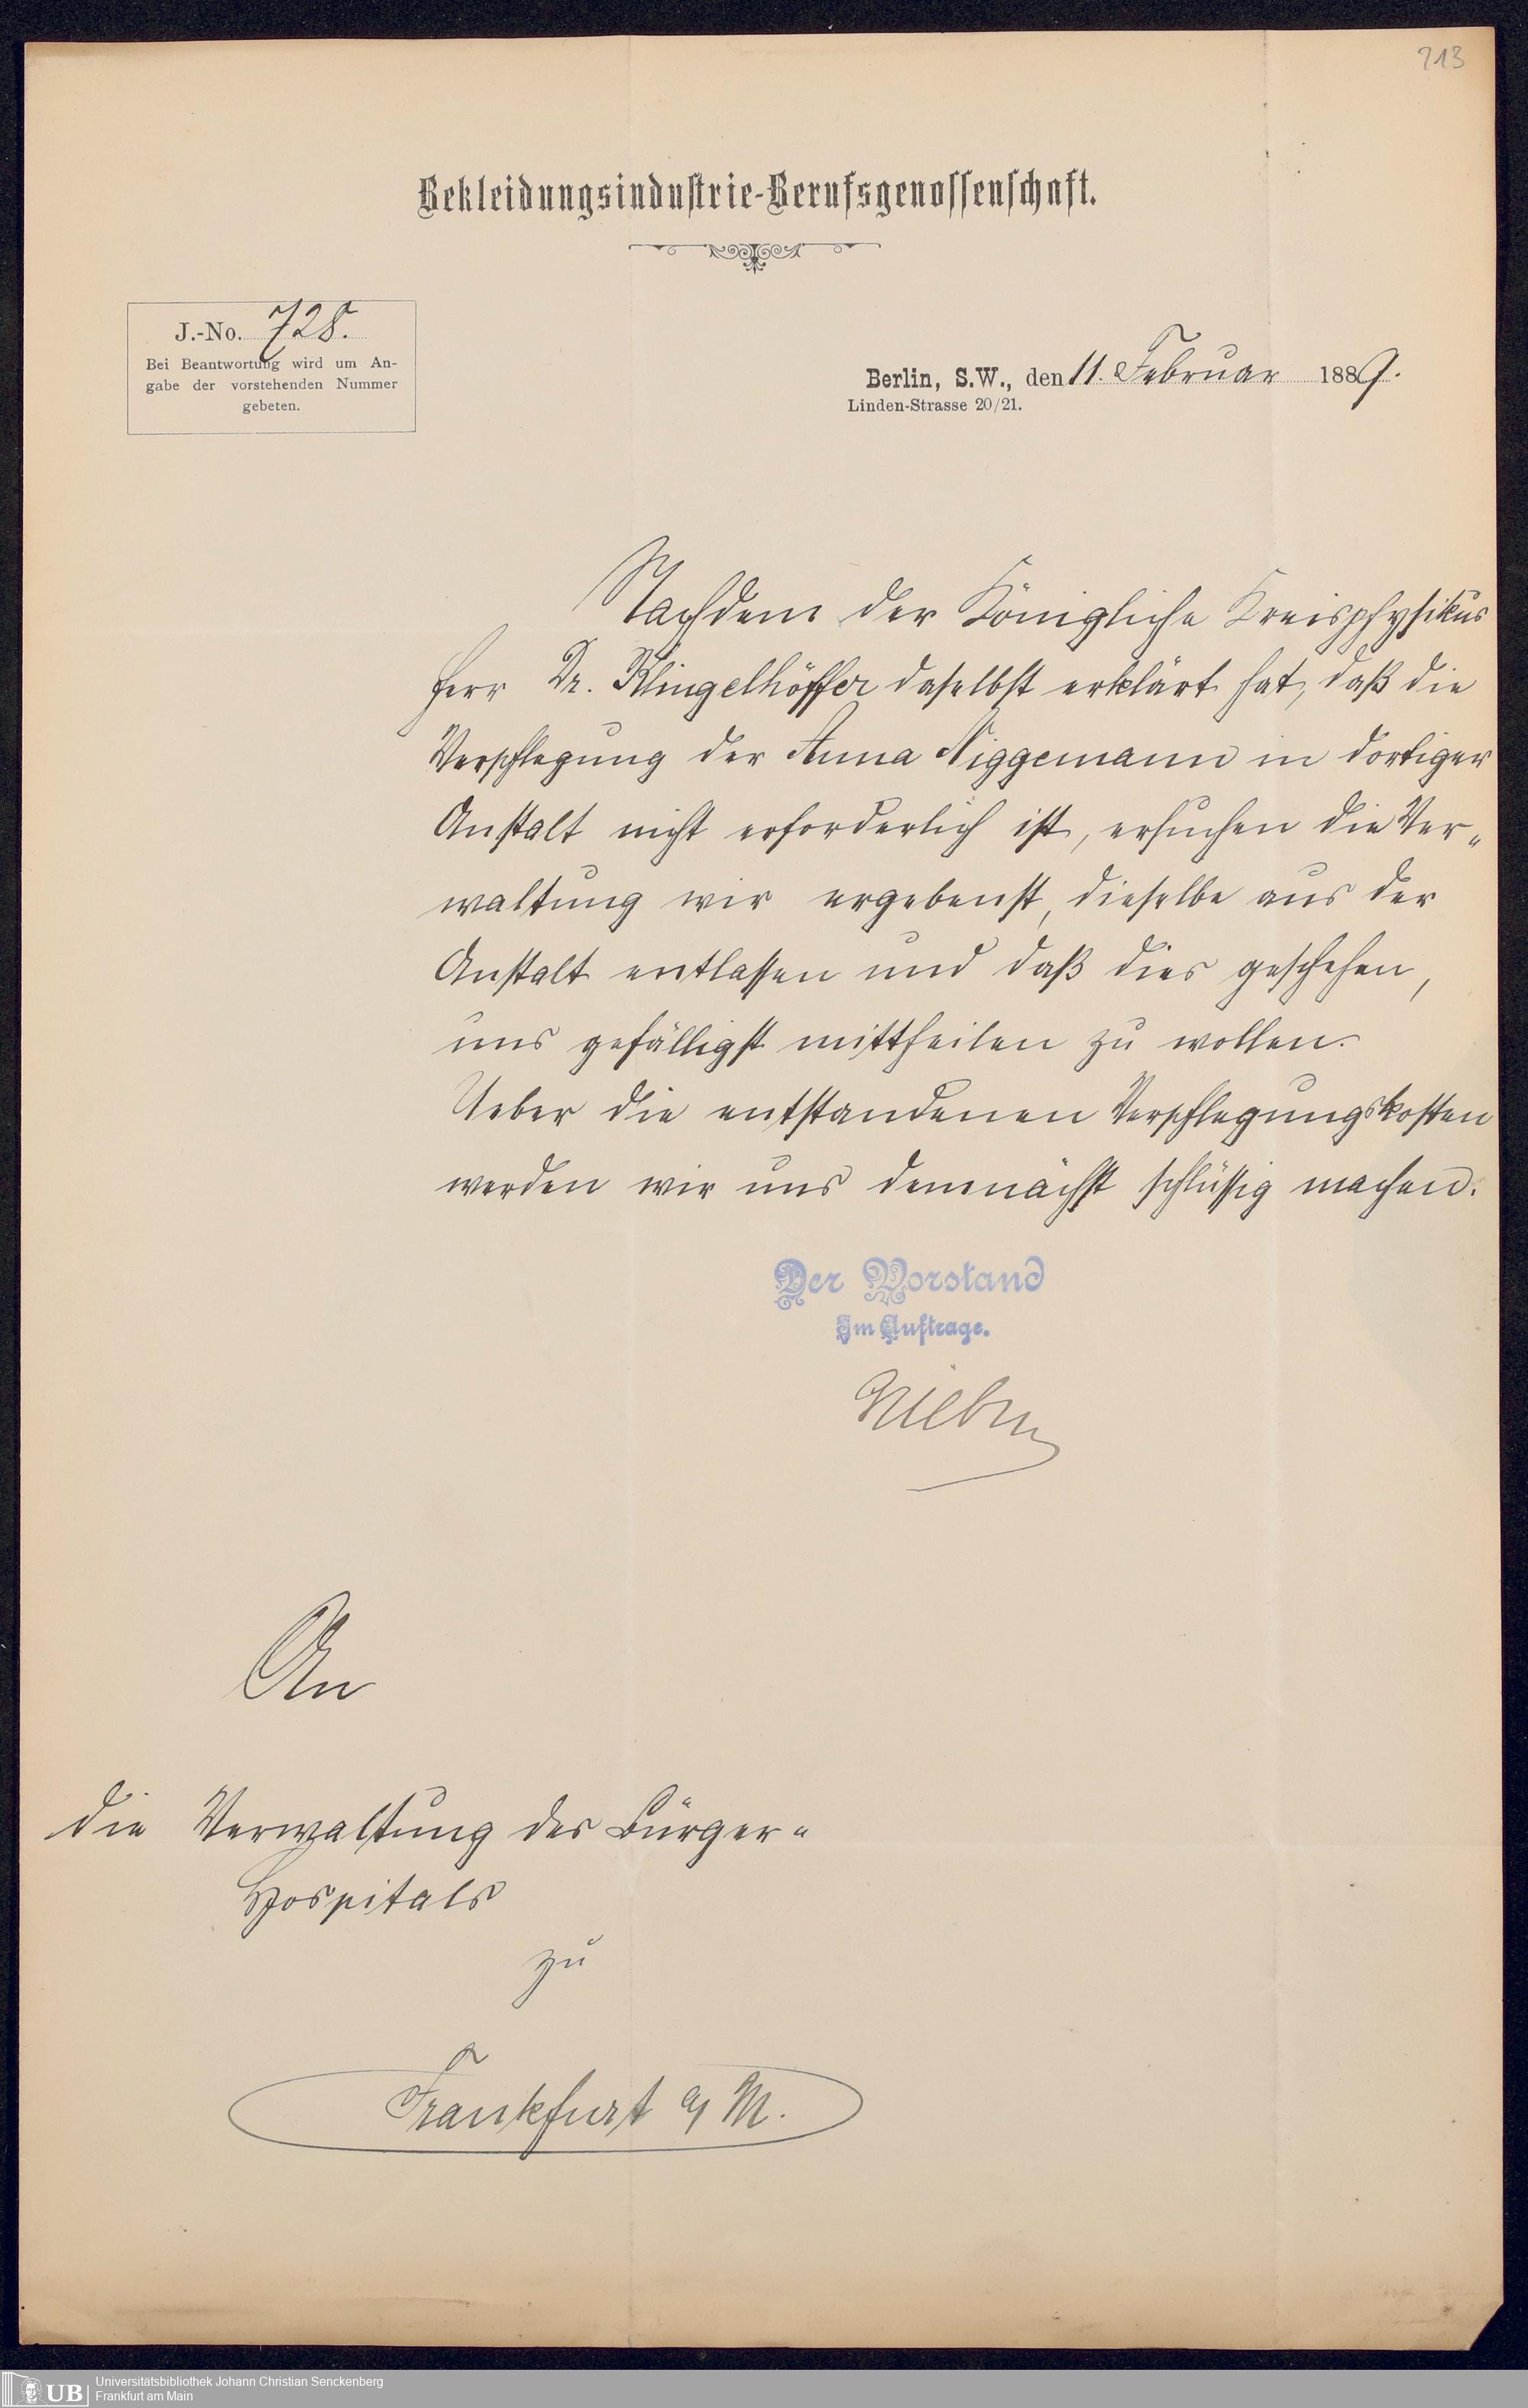 213
Bekleidungsindustrie-Berufsgenossenschaft.
J.-No. 728.
Bei Beantwortung wird um An-
gabe der vorstehenden Nummer
gebeten.
Berlin, S.W., den 11. Februar 1889.
Linden-Strasse 20/21.
Nachdem der Königliche Kreisphysikus
Herr Dr. Klingelhöffer daselbst erklärt hat, daß die
Verpflegung der Anna Niggemann in dortiger
Anstalt nicht erforderlich ist, ersuchen die Ver„
waltung wir ergebenst, dieselbe aus der
Anstalt entlassen und daß dies geschehen,
uns gefälligst mittheilen zu wollen.
Ueber die entstandenen Verpflegungskosten
werden wir uns demnächst schlüssig machen.
Der Vorstand
Im Auftrage.
An
die Verwaltung des Bürger„
Hospitals
zu
Frankfurt a/M.
UB
Universitätsbibliothek Johann Christian Senckenberg
Frankfurt am Main